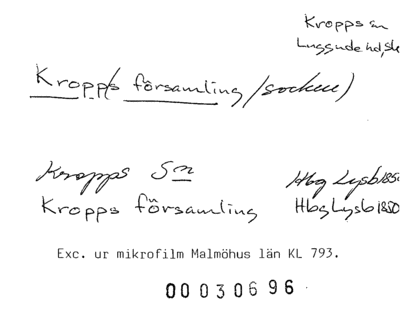 Kropps sn
Luggude hd, Sk
Kropps församling /socken)
Kropps Sn Hbg Lysb 1850
Kropps församling Hbg Lysb 1850
Exc. ur mikrofilm Malmöhus län KL 793.
00030696